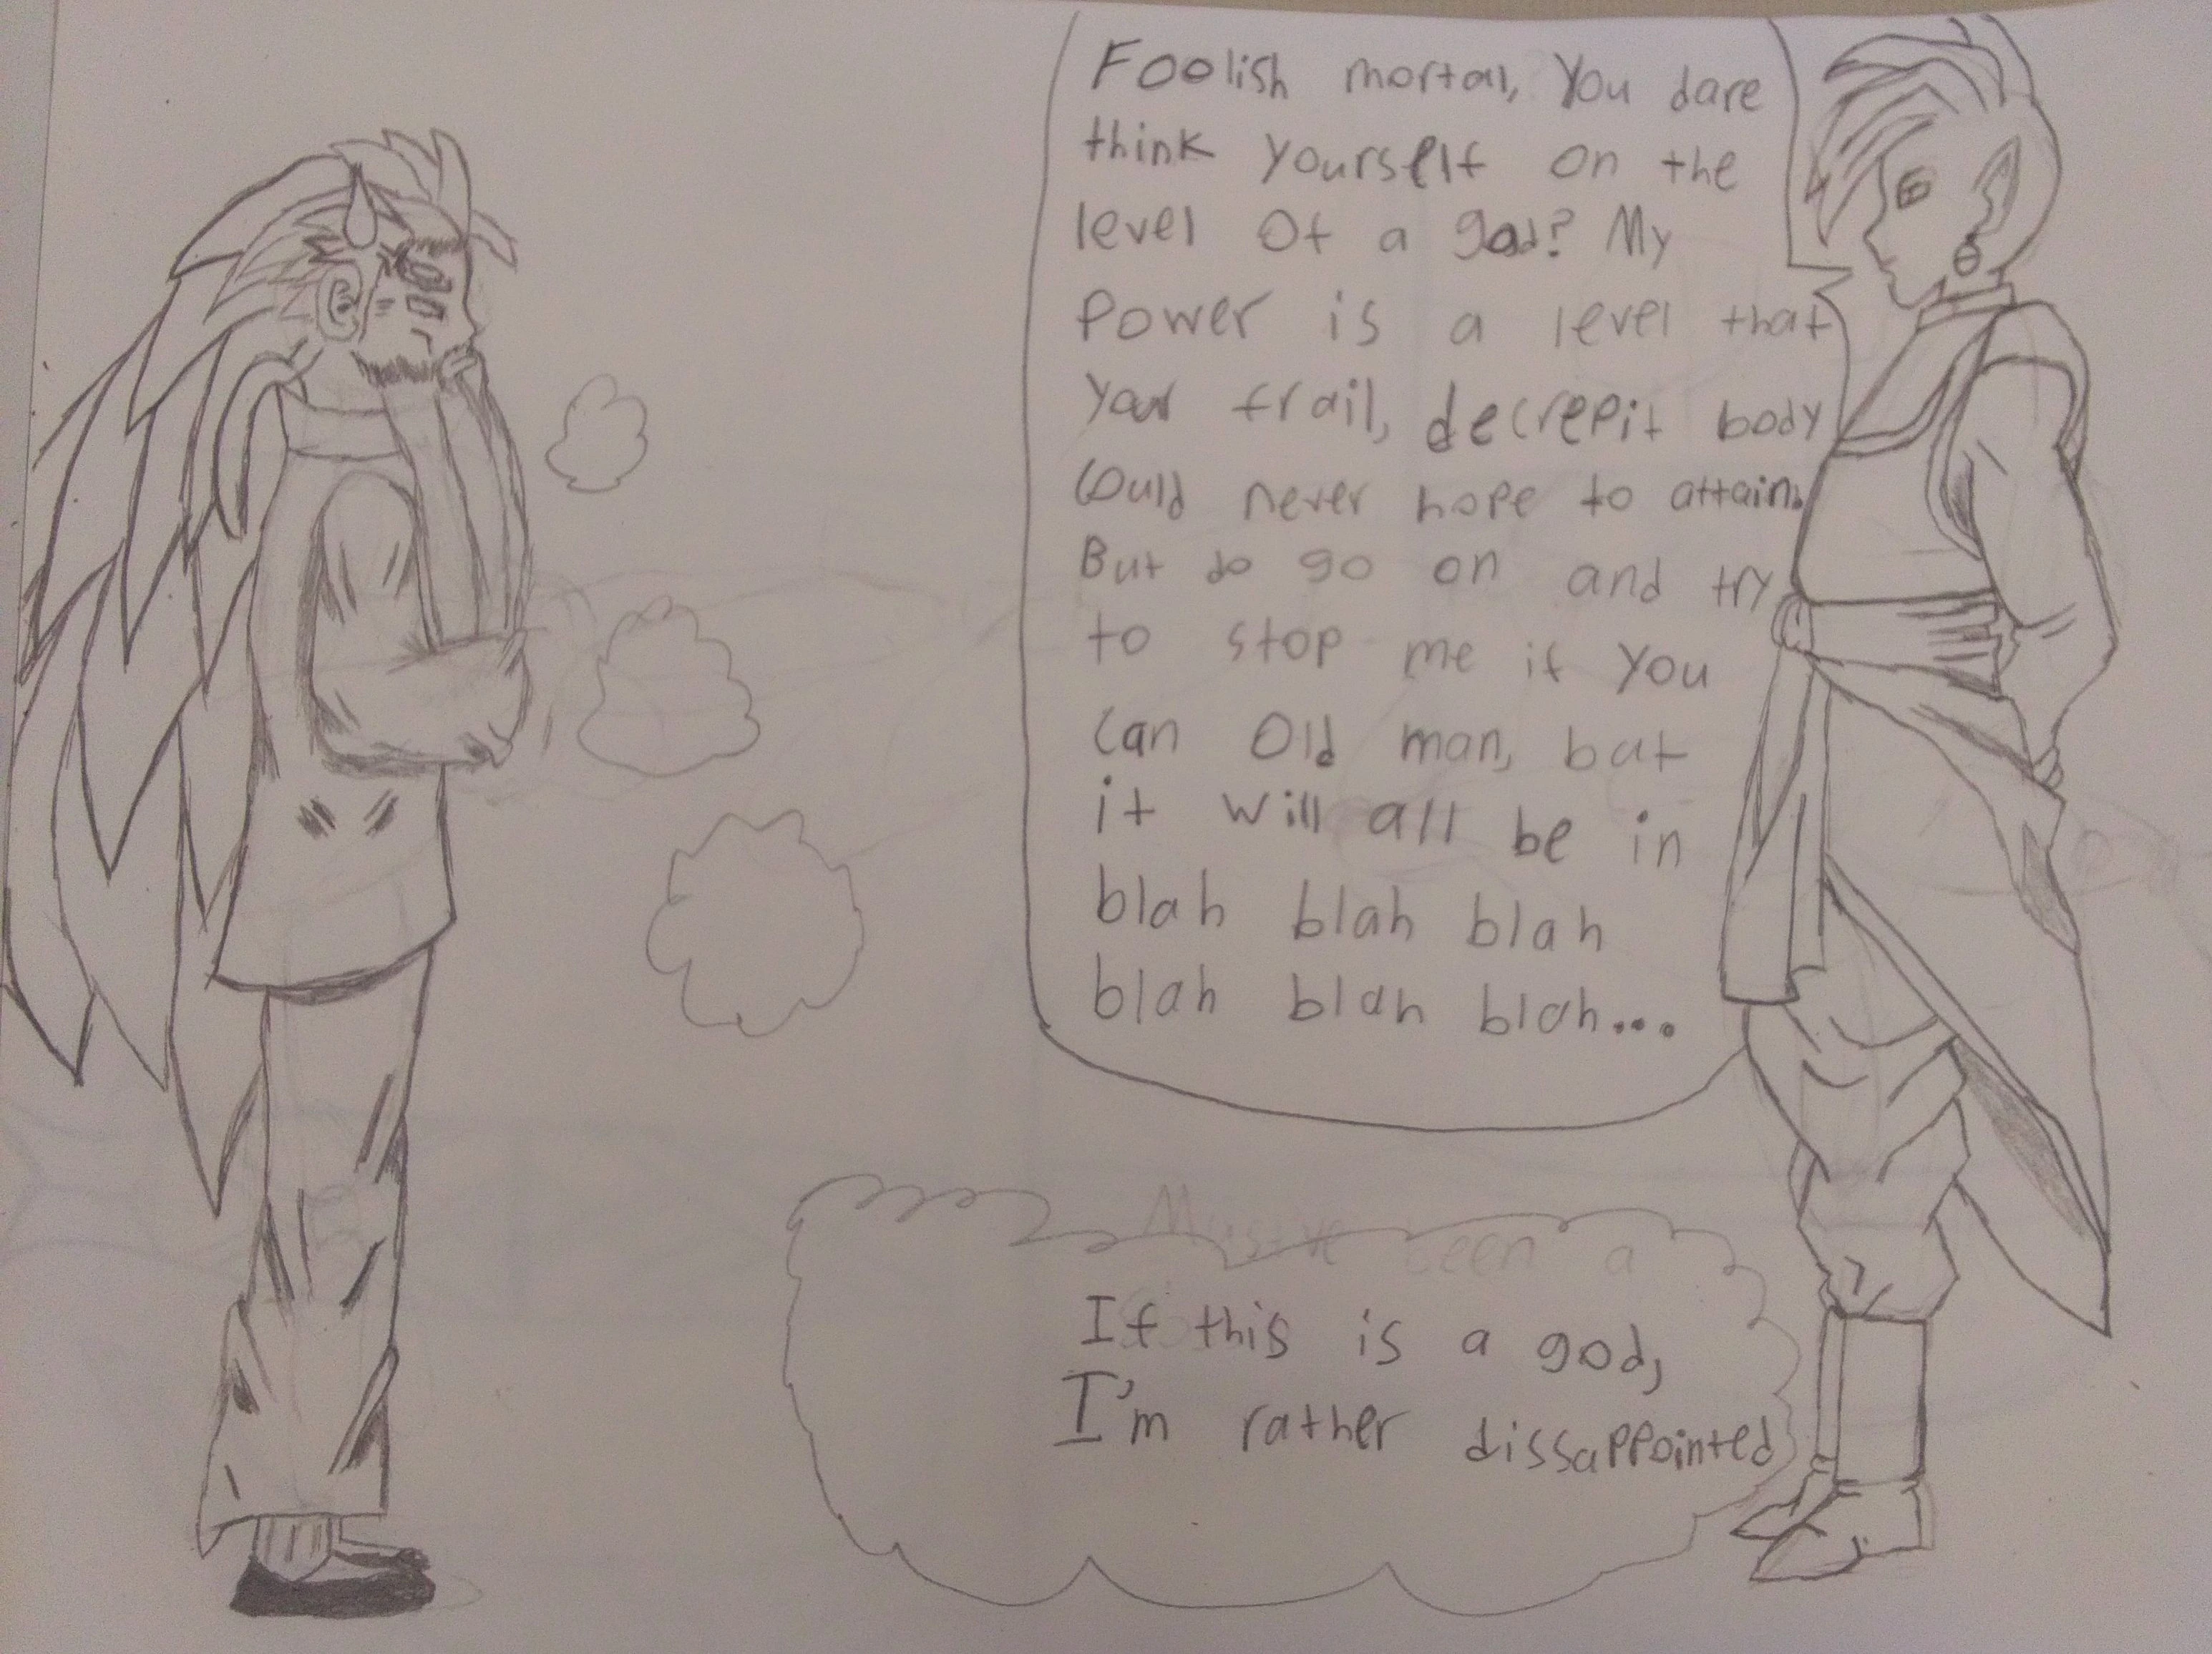 Foolish mortal, You dare
think yourself on the
level of a god? My
Power is a level that
Your frail, decrepit body
Could never hope to attain.
But do go on and try
to stop me if you
can old man, but
it will all be in
blah blah blah
blah blah blah...
If this is a god,
I'm rather dissappointed